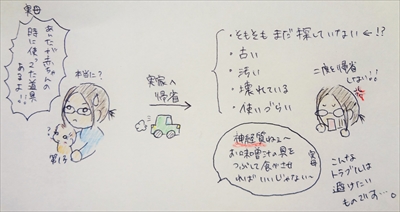 実母
あなたが赤ちゃんの
時に使った道具
あるよ!!
本当に?
?
第1子
実家へ
帰省
・そもそもまだ探していない ←!?
・古い
・汚い
・壊れている
・使いづらい
二度と帰省
しない!!
実母
神経質ねぇ〜
お味噌汁の具を
つぶして食べさせ
ればいいじゃない〜
こんな
トラブルは
避けたい
ものです…。